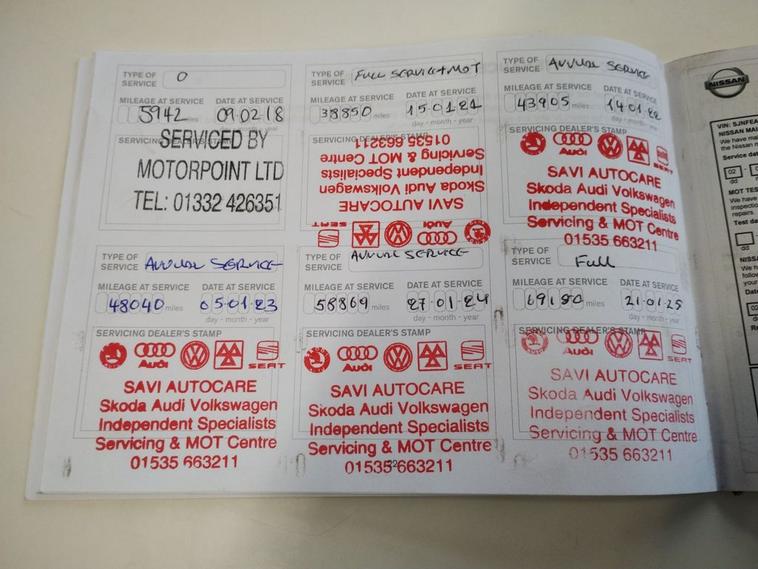 TYPE OF SERVICE O
MILEAGE AT SERVICE DATE AT SERVICE
5942 09 02 18
SERVICING DEALER'S STAMP
SERVICED BY
MOTORPOINT LTD
TEL: 01332 426351
TYPE OF SERVICE FULL SERVICE + MOT
MILEAGE AT SERVICE DATE AT SERVICE
38850 miles 15 01 21
day - month - year
SERVICING DEALER'S STAMP
Audi
SEAT
SAVI AUTOCARE
Skoda Audi Volkswagen
Independent Specialists
Servicing & MOT Centre
01535 663211
TYPE OF SERVICE ANNUAL SERVICE
MILEAGE AT SERVICE DATE AT SERVICE
43905 miles 14 01 22
day - month - year
SERVICING DEALER'S STAMP
Audi SEAT
SAVI AUTOCARE
Skoda Audi Volkswagen
Independent Specialists
Servicing & MOT Centre
01535 663211
TYPE OF SERVICE ANNUAL SERVICE
MILEAGE AT SERVICE DATE AT SERVICE
48040 miles 05 01 23
day - month - year
SERVICING DEALER'S STAMP
Audi SEAT
SAVI AUTOCARE
Skoda Audi Volkswagen
Independent Specialists
Servicing & MOT Centre
01535 663211
TYPE OF SERVICE ANNUAL SERVICE
MILEAGE AT SERVICE DATE AT SERVICE
58869 miles 27 01 24
day - month - year
SERVICING DEALER'S STAMP
Audi SEAT
SAVI AUTOCARE
Skoda Audi Volkswagen
Independent Specialists
Servicing & MOT Centre
01535 663211
TYPE OF SERVICE Full
MILEAGE AT SERVICE DATE AT SERVICE
69180 miles 21 01 25
day - month - year
SERVICING DEALER'S STAMP
Audi SEAT
SAVI AUTOCARE
Skoda Audi Volkswagen
Independent Specialists
Servicing & MOT Centre
01535 663211
NISSAN
VIN: SJNFEA
NISSAN MAI
We have
the Nissan m
Service date
02
dd
MOT TES
We have
inspection
repairs.
dd
NISSA
We hav
follow
your
Date